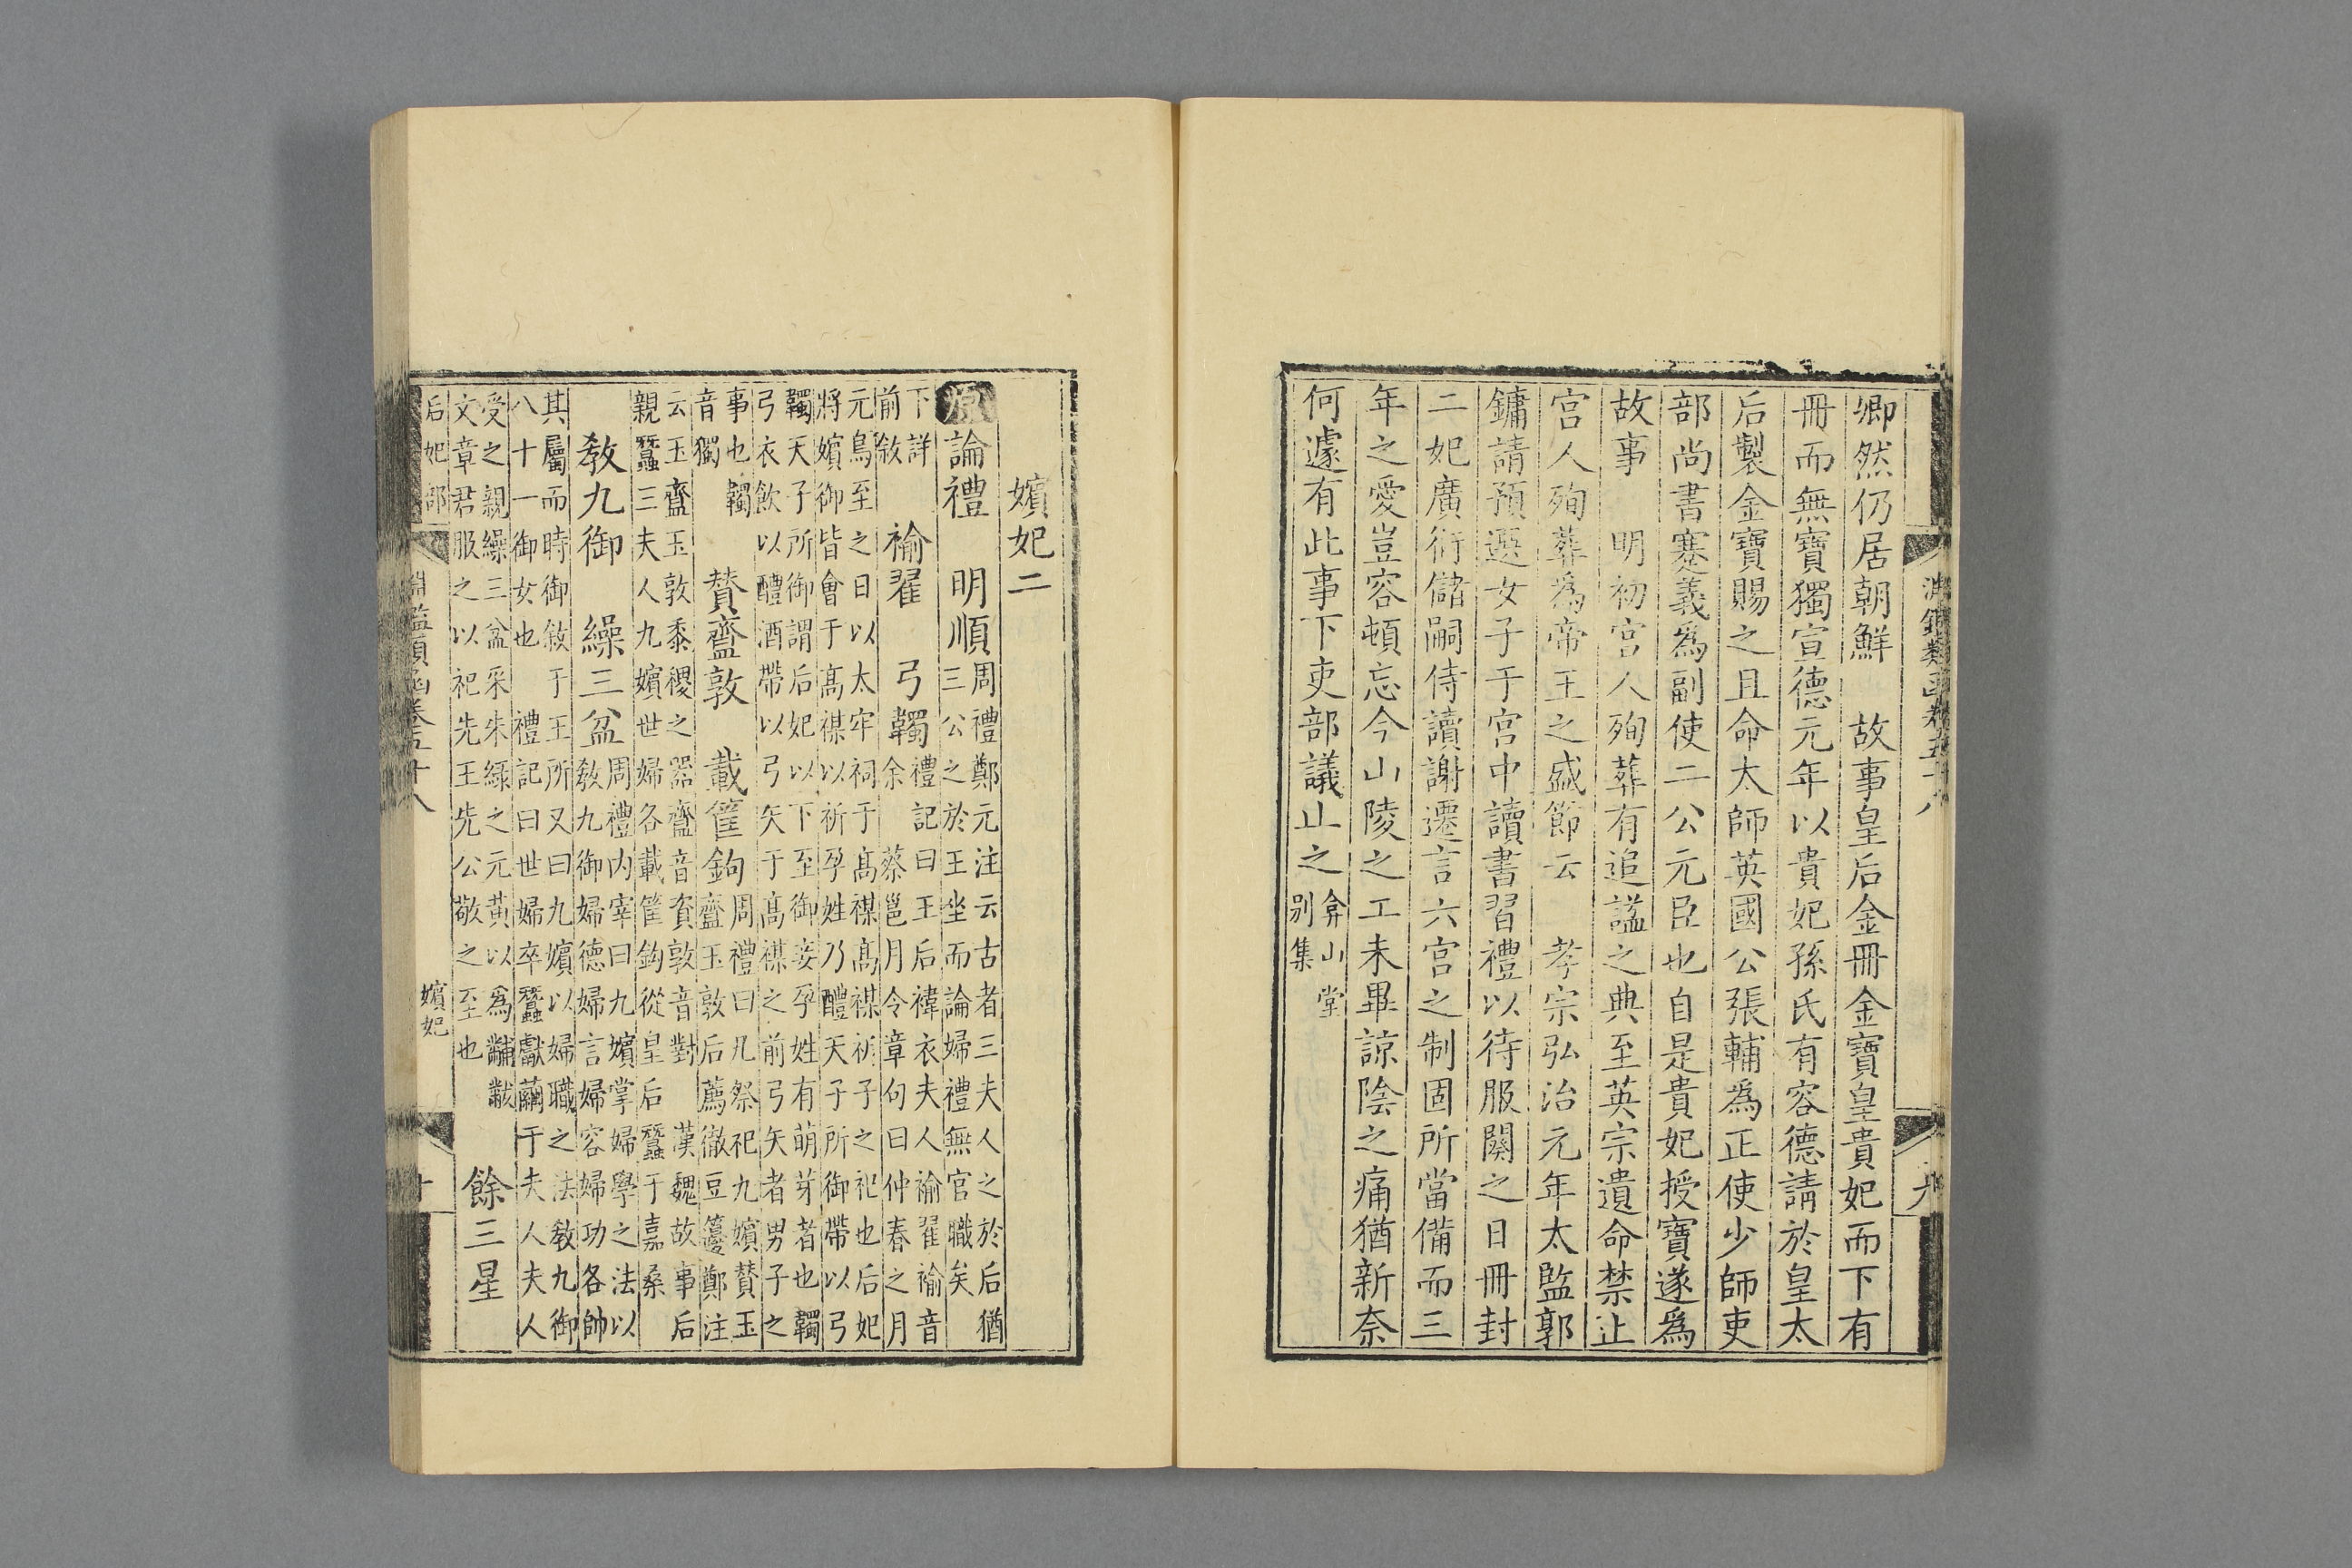 淵鑑類函卷五十八
九
卿然仍居朝鮮 故事皇后金冊金寶皇貴妃而下有
冊而無寶獨宣德元年以貴妃孫氏有容德請於皇太
后製金寶賜之且命太師英國公張輔為正使少師吏
部尚書蹇義為副使二公元臣也自是貴妃授寶遂為
故事 明初宮人殉葬有追諡之典至英宗遺命禁止
宮人殉葬為帝王之盛節云 孝宗弘治元年太監郭
鏞請預選女子于宮中讀書習禮以待服闋之日冊封
二妃廣衍儲嗣侍讀謝遷言六宮之制固所當備而三
年之愛豈容頓忘今山陵之工未畢諒陰之痛猶新奈
何遽有此事下吏部議止之弇山堂
別集
嬪妃二
原論禮 明順周禮鄭元注云古者三夫人之於后猶
三公之於王坐而論婦禮無官職矣
下詳
前敘 褕翟 弓韣禮記曰王后褘衣夫人褕翟褕音
余 蔡邕月令章句曰仲春之月
元鳥至之日以太牢祠于高禖高禖祈子之祀也后妃
將嬪御皆會于高禖以祈孕姓乃醴天子所御帶以弓
韣天子所御謂后妃以下至御妾孕姓有萌芽者也韣
弓衣飲以醴酒帶以弓矢于高禖之前弓矢者男子之
事也韣
音獨 贊齍敦 載筐鉤周禮曰凡祭祀九嬪贊玉
齍玉敦后薦徹豆籩鄭注
云玉齍玉敦黍稷之器齍音資敦音對 漢魏故事后
親蠶三夫人九嬪世婦各載筐鉤從皇后蠶于嘉桑
教九御 繅三盆周禮內宰曰九嬪掌婦學之法以
教九御婦德婦言婦容婦功各帥
其屬而時御敘于王所又曰九嬪以婦職之法教九御
八十一御女也 禮記曰世婦卒蠶獻繭于夫人夫人
受之親繅三盆采朱綠之元黃以為黼黻
文章君服之以祀先王先公敬之至也 餘三星
后妃部
淵鑑類函卷五十八
嬪妃
十